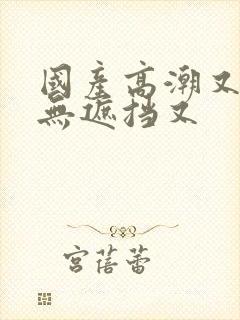 國產高潮又
無遮挡又
宮蓓蕾